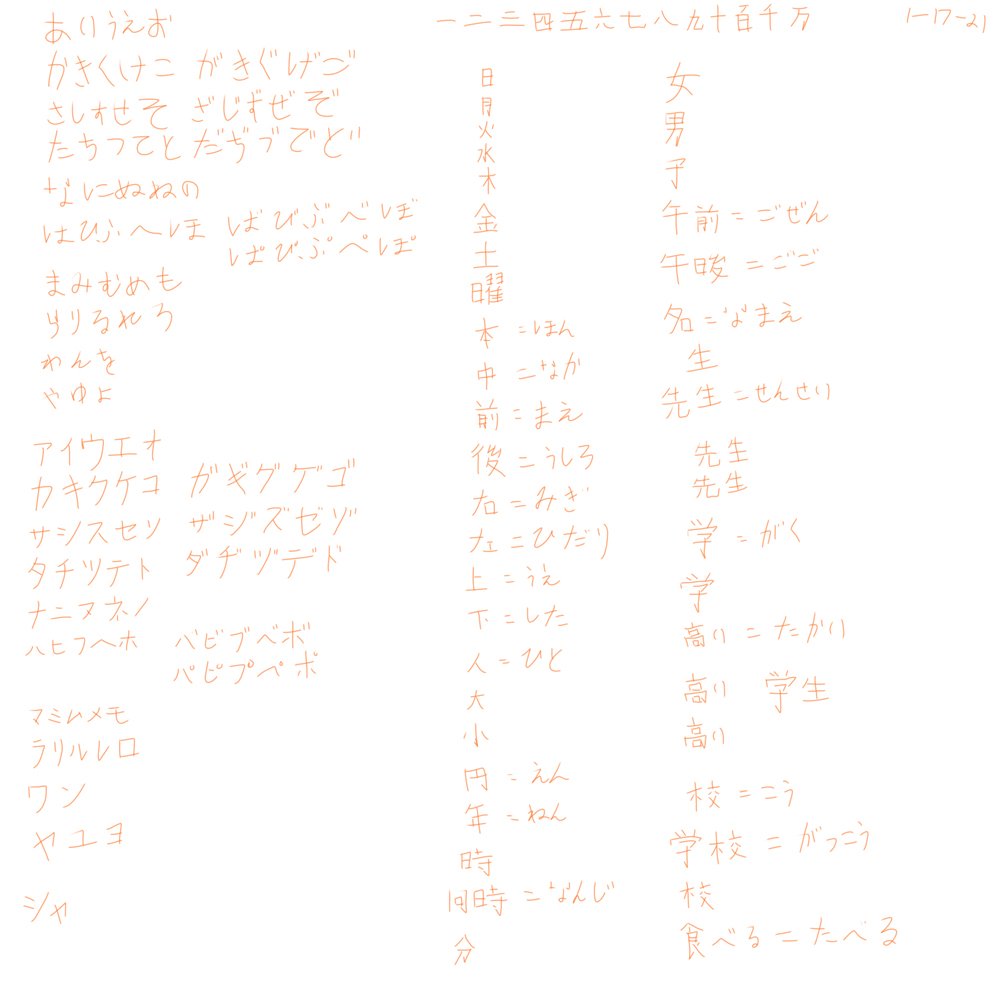 ありうえお
かきくけこ がきぐげご
さしすせそ ざじずぜぞ
たちつてと だぢづでど
なにぬねの
はひふへほ ばびぶべぼ
ぱぴぷぺぽ
まみむめも
らりるれろ
わんを
やゆよ
アイウエオ
カキクケコ ガギグゲゴ
サシスセソ ザジズゼゾ
タチツテト ダヂヅデド
ナニヌネノ
ハヒフヘホ バビブベボ
パピプペポ
マミムメモ
ラリルレロ
ワン
ヤユヨ
シャ
一二三四五六七八九十百千万
日
月
火
水
木
金
土
曜
本=ほん
中=なか
前=まえ
後=うしろ
右=みぎ
左=ひだり
上=うえ
下=した
人=ひと
大
小
円=えん
年=ねん
時
何時=なんじ
分
1-17-21
女
男
子
午前=ごぜん
午後=ごご
名=なまえ
生
先生=せんせり
先生
先生
学=がく
学
高い=たかい
高い 学生
高い
校=こう
学校=がっこう
校
食べる=たべる